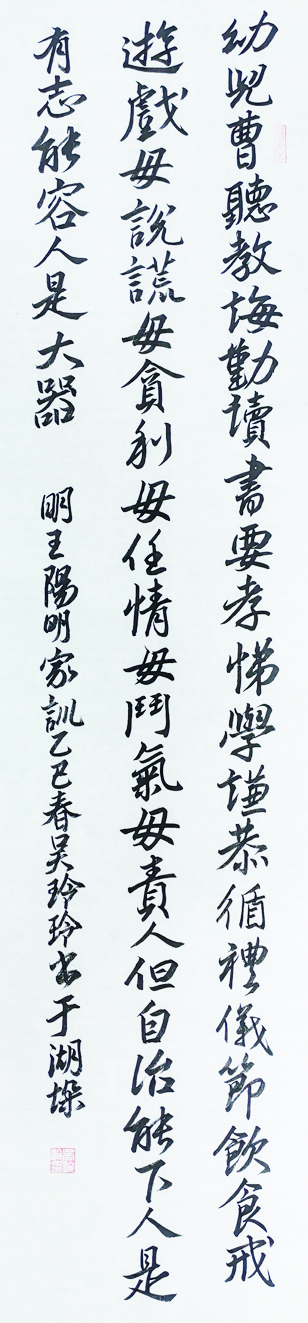 幼兒曹聽教誨勤讀書要孝悌學謙恭循禮儀節飲食戒
遊戲毋說謊毋貪利毋任情毋鬥氣毋責人但自治能下人是
有志能容人是大器
明王陽明家訓乙巳春吳玲玲書于湖墚